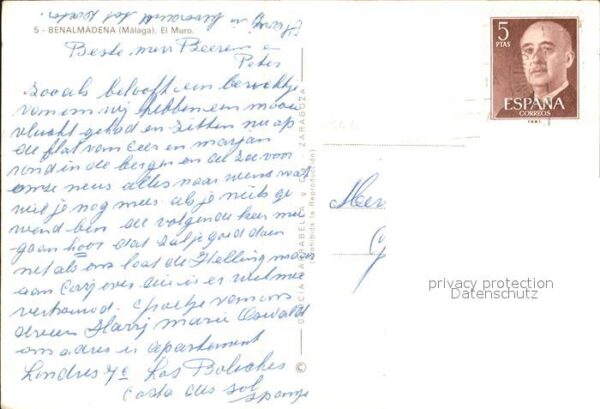 Harry is
5 - BENALMADENA (Málaga). El Muro.
Beste mevr Beerens e
Peter
zooals belooft een berichtje
van om wij hebben een mooie
vlucht gehad en zitten nu op
de flat van Cees en marjan
rond in de bergen en de zee voor
onze neus alles naar wens wat
wil je nog meer als je niets ge
wend ben de volgende keer mee
gaan hoor dat zal je goed doen
net als ons laat de Helling maar
aan Corg over die is er wel mee
vertrouwd. Groetjes van ons
drieen Harry marie Oswald
om adres is apartement
Londres 7c Los Boliches
Costa del sol
Spanje
GARCIA GARRABELLA y Cía. - ZARAGOZA
(Prohibida la Reproducción)
5
PTAS
ESPAÑA
CORREOS
F.N.M.T.
Mev
privacy protection
Datenschutz
©